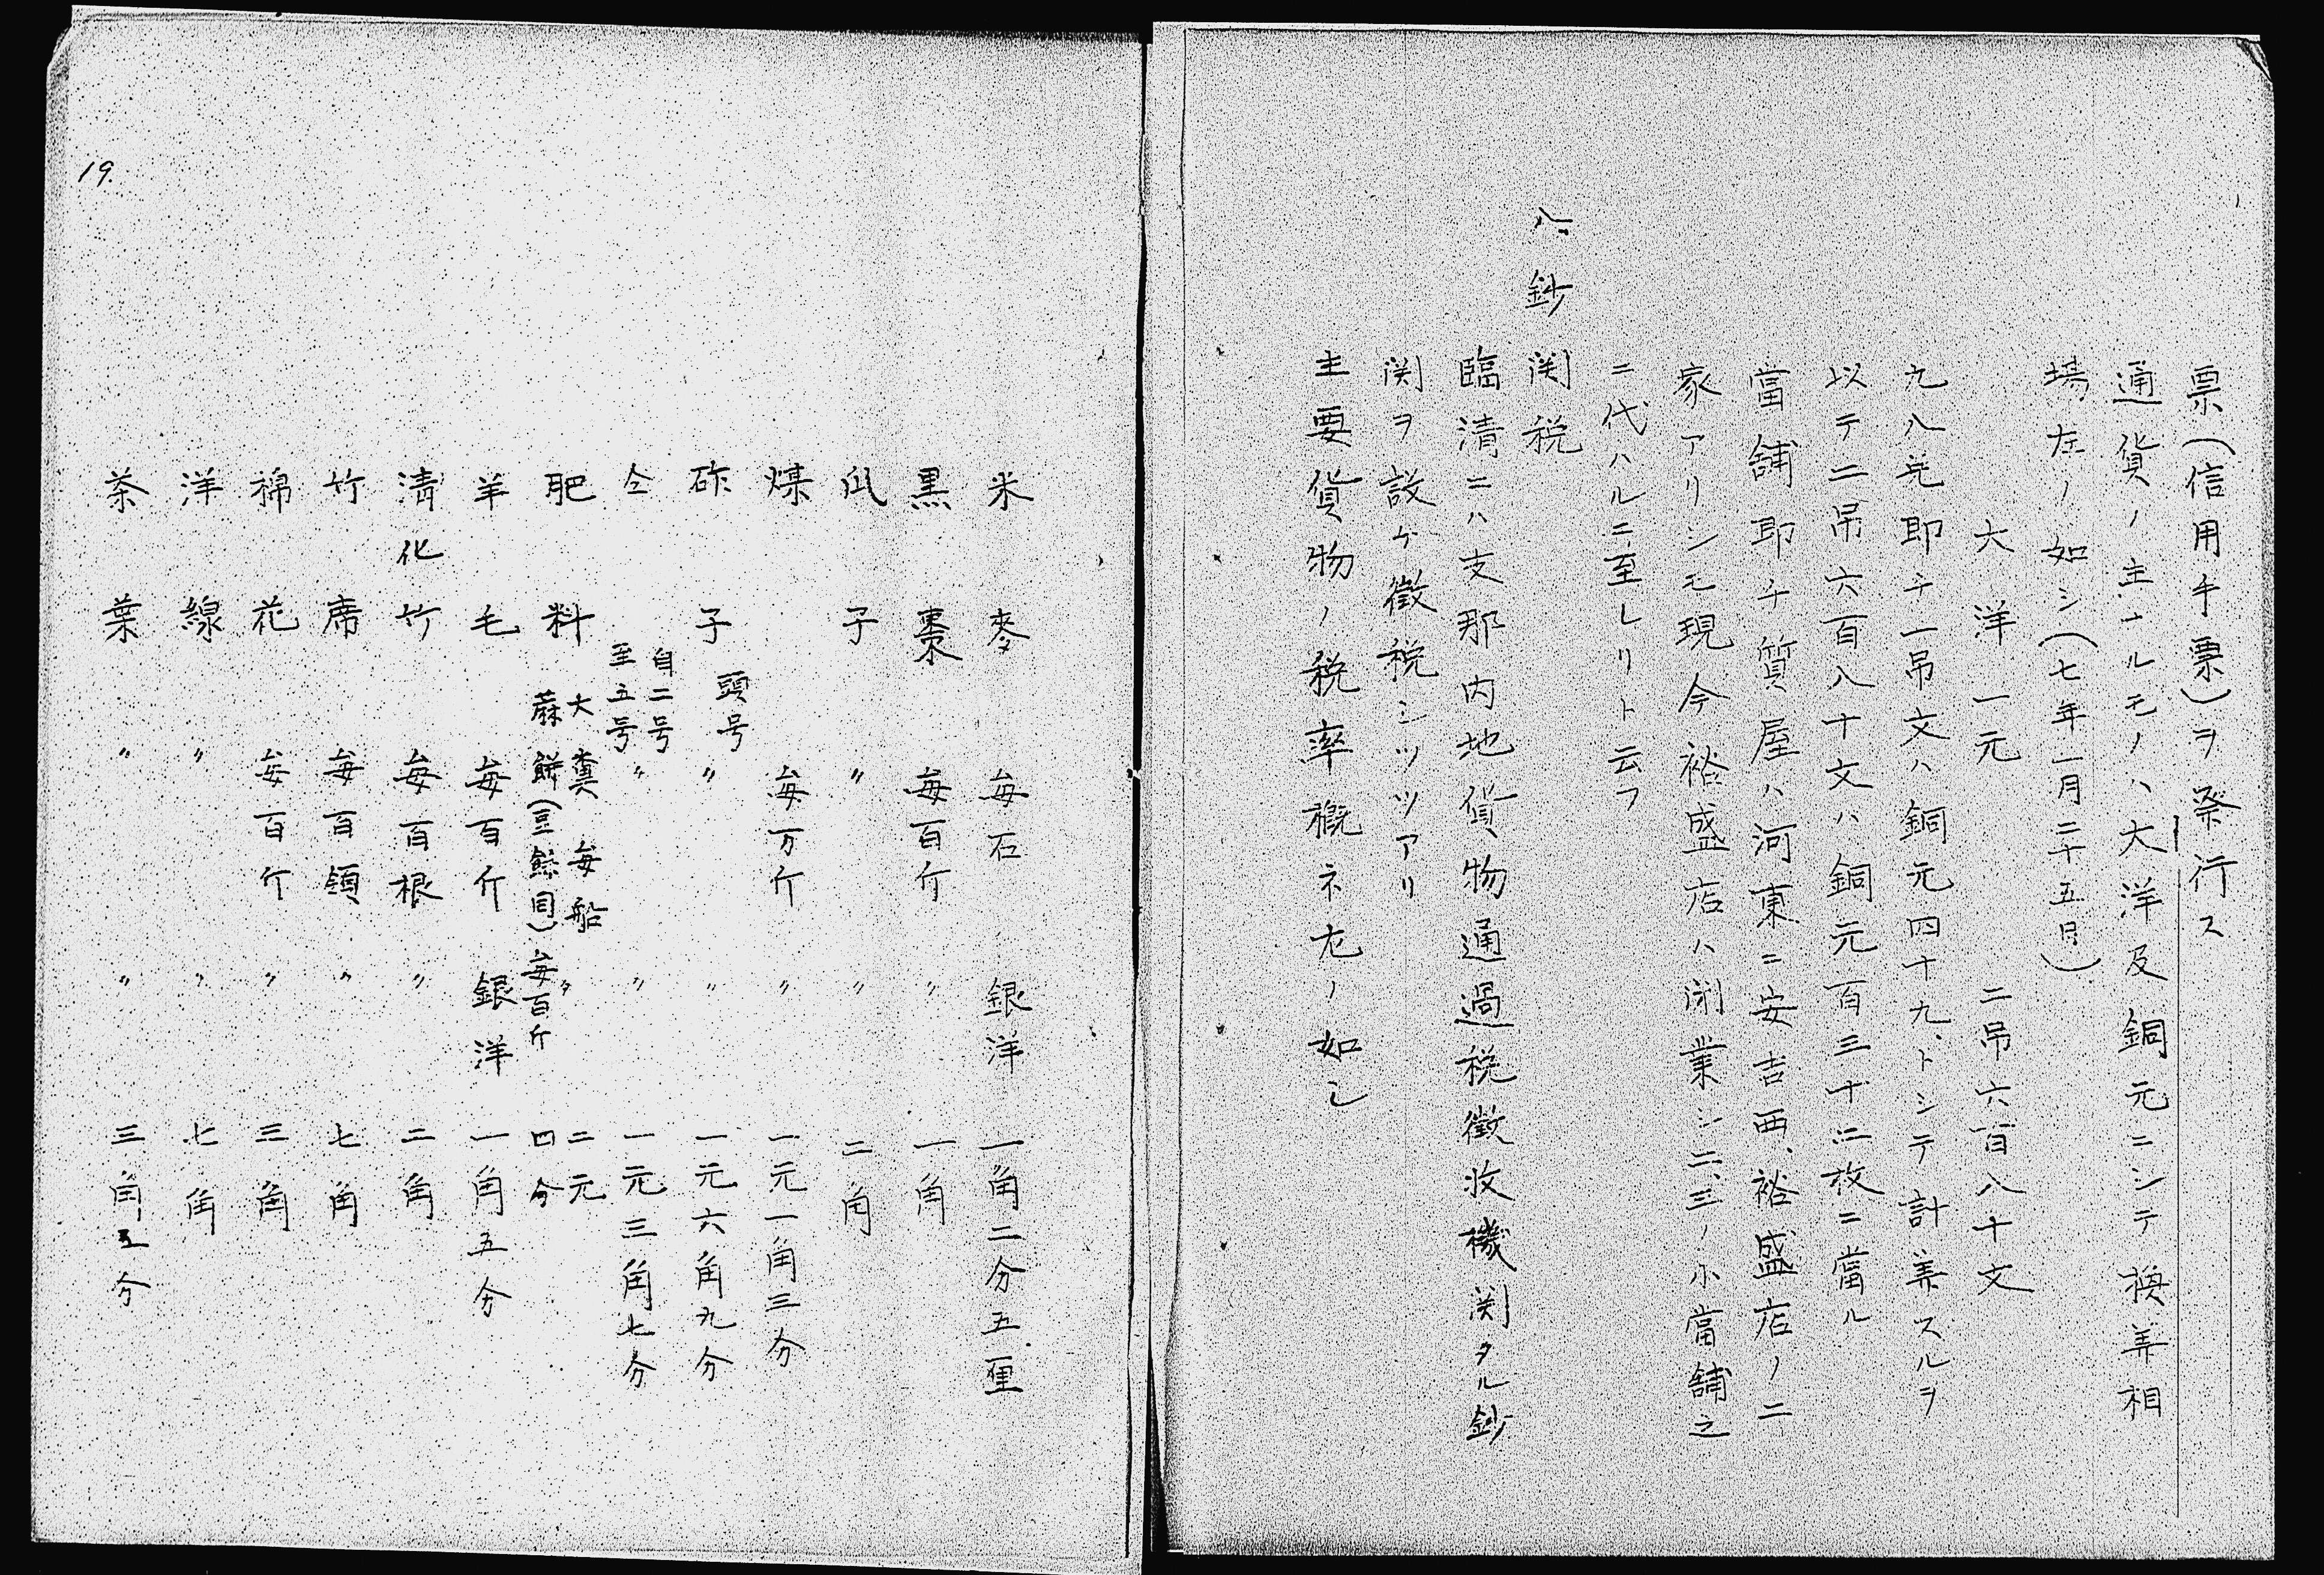 票(信用手票)ヲ発行ス
通貨ノ主ナルモノハ大洋及銅元ニシテ換算相
場左ノ如シ(七年一月二十五日)
大洋一元 二吊六百八十文
九八兌即チ一吊文ハ銅元四十九トシテ計算スルヲ
以テ二吊六百八十文ハ銅元百三十二枚ニ當ル
當舗即チ質屋ハ河東ニ安吉西、裕盛店ノ二
家アリシモ現今裕盛店ハ閉業シ二、三ノ小當舗之
ニ代ハルニ至レリト云フ
八、鈔関税
臨清ニハ支那内地貨物通過税徴收機関タル鈔
関ヲ設ケ徴税シツツアリ
主要貨物ノ税率概ネ左ノ如シ
米麥 每石 銀洋 一角二分五厘
黒棗 每百斤 〃 一角
瓜子 〃 〃 二角
煤 每万斤 〃 一元一角三分
砟子 頭号 〃 〃 一元六角九分
仝 自二号至五号 〃 〃 一元三角七分
肥料 大糞 每船 〃 二元
蔴餅(豆餘同) 每百斤 四分
羊毛 每百斤 銀洋 一角五分
淸化竹 每百根 〃 二角
竹席 每百領 〃 七角
棉花 每百斤 〃 三角
洋線 〃 〃 七角
茶葉 〃 〃 三角五分
19.